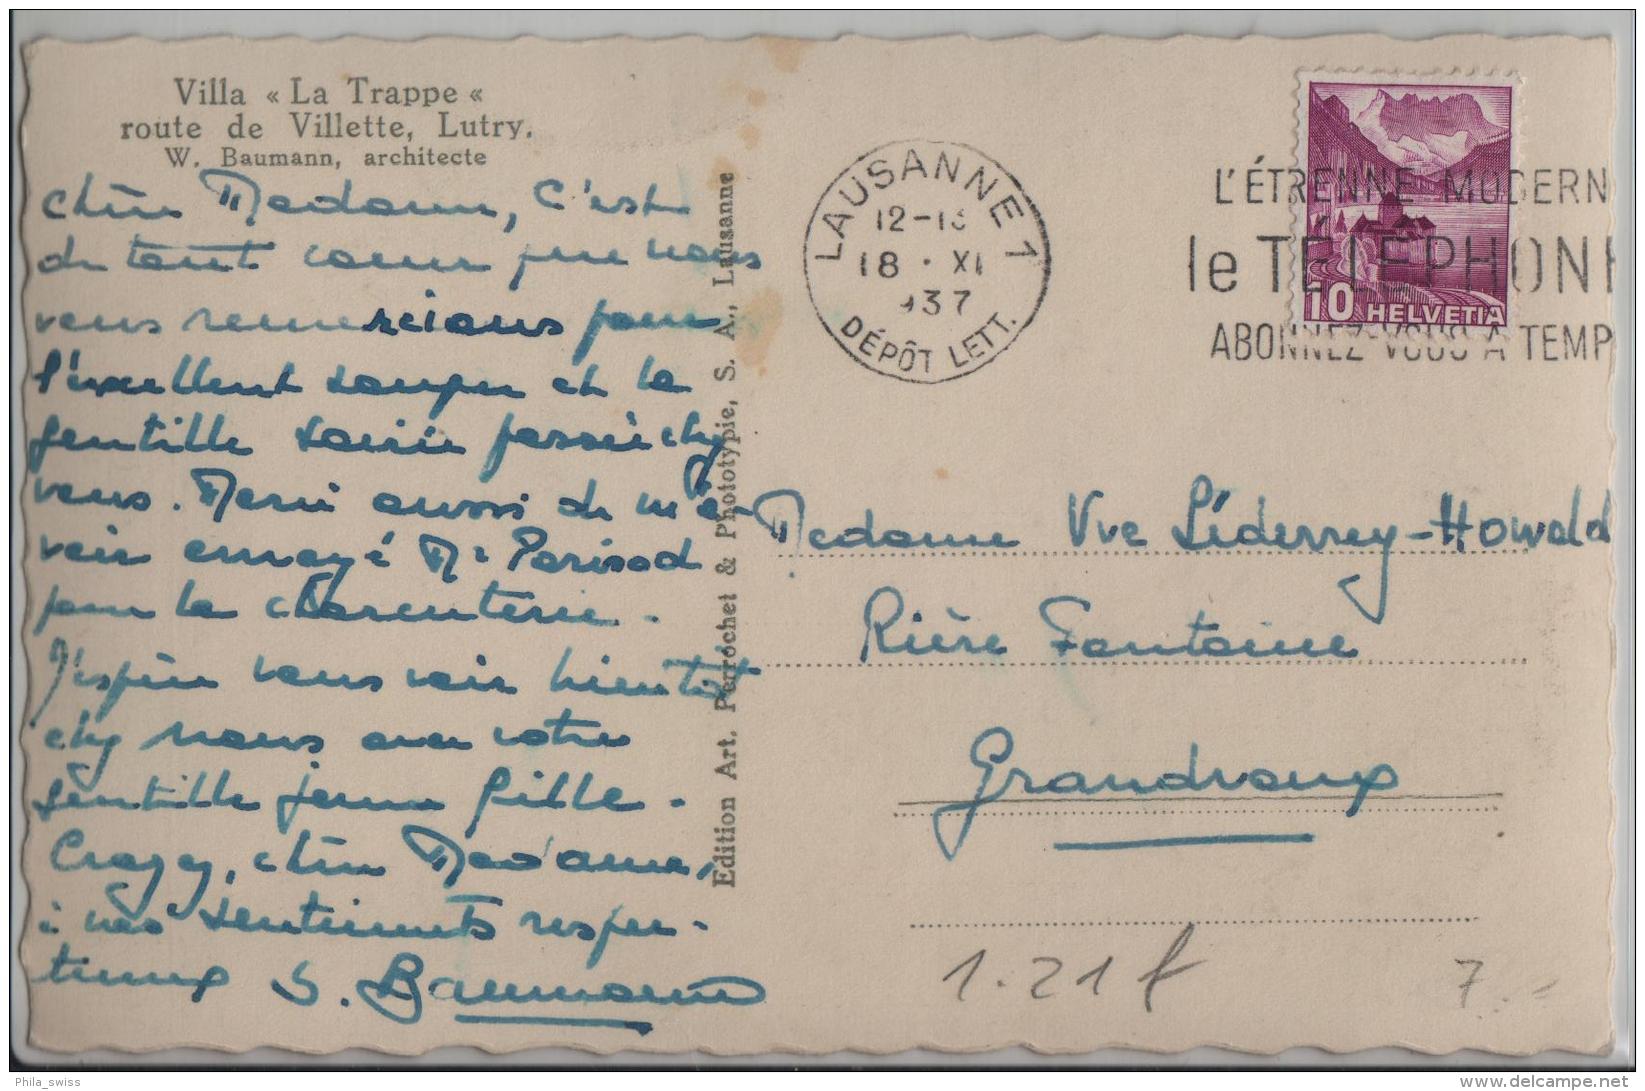 Villa « La Trappe «
route de Villette, Lutry.
W. Baumann, architecte
Chère Madame, C'est
de tout coeur que nous
vous remercions pour
l'excellent souper et la
gentille soirée passée chez
vous. Merci aussi de m'a-
voir envoyé Mr Parisod
pour la charcuterie.
J'espère vous voir bientôt
chez nous avec votre
gentille jeune fille.
Croyez, chère Madame,
à nos sentiments respec-
tueux S. Baumann
Edition Art. Perrochet & Phototypie, S. A., Lausanne
LAUSANNE 1
12-13
18 · XI
937
DÉPÔT LETT.
L'ÉTRENNE MODERN
le TÉLÉPHON
ABONNEZ-VOUS A TEMP
10 HELVETIA
Madame Vve Léderrey-Howald
Rière Fontaine
Grandvaux
1.21 f
7.-
Phila_swiss
www.delcampe.net